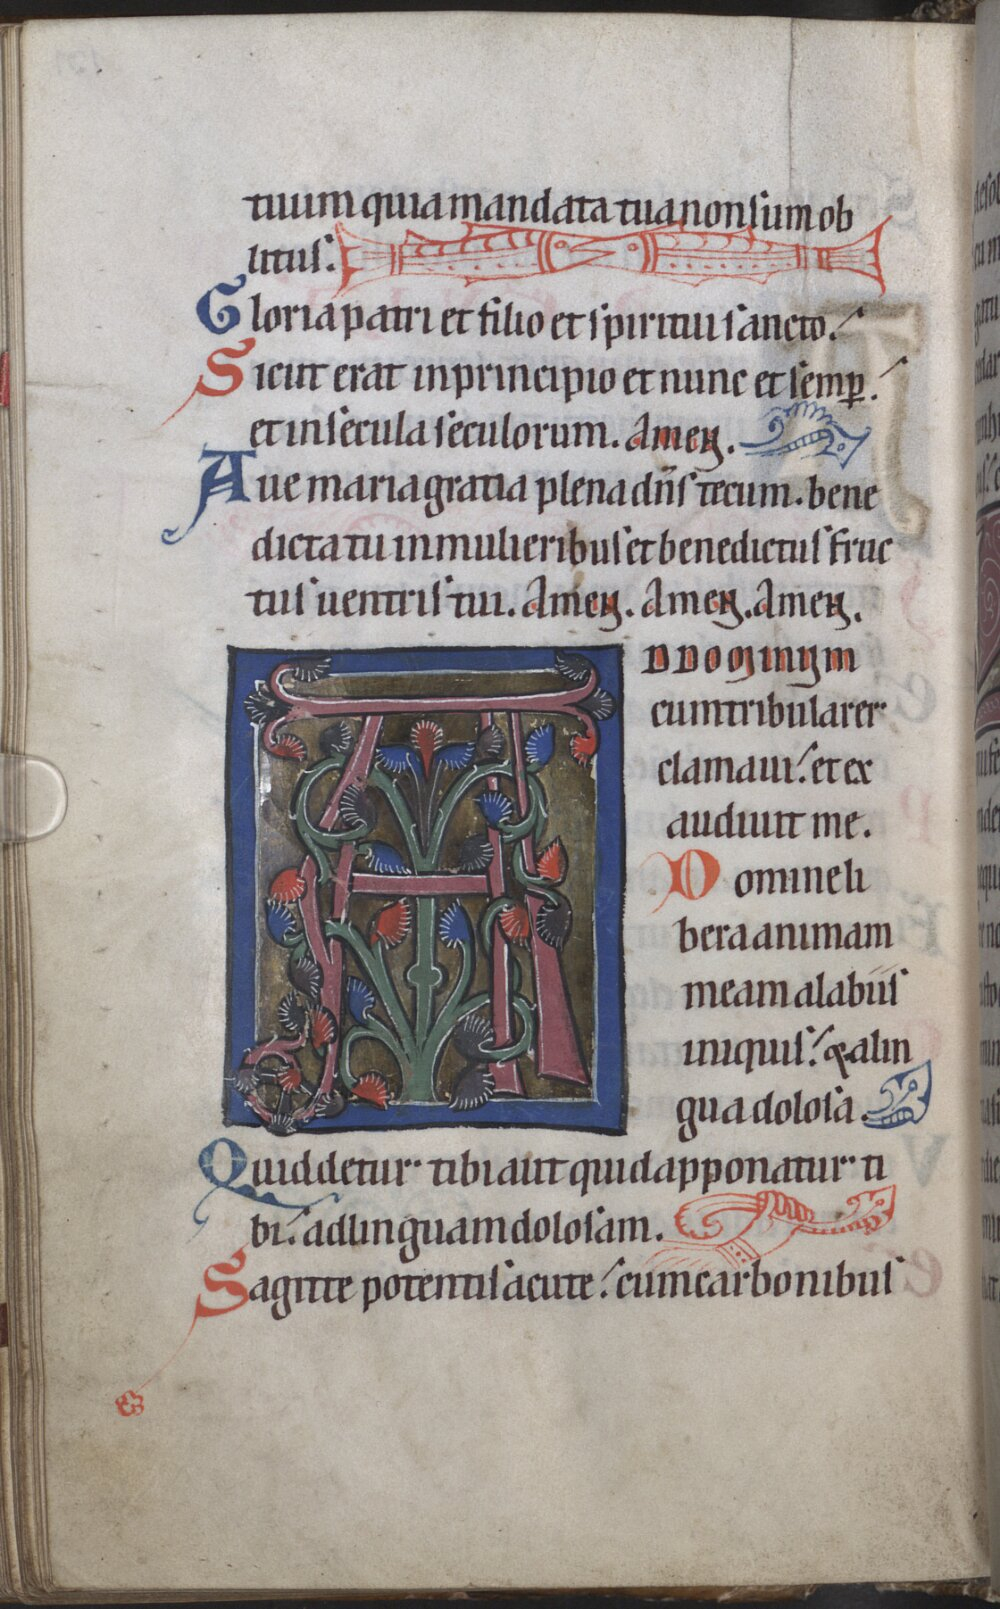 tuum quia mandata tua non sum ob
litus.
Gloria patri et filio et spiritui sancto.
Sicut erat in principio et nunc et semꝑ.
et in secula seculorum. Amen.
Aue maria gratia plena dn̄s tecum. bene
dicta tu in mulieribus et benedictus fruc
tus uentris tui. Amen. Amen. Amen.
AD DOMINUM
cum tribularer
clamaui. et ex
audiuit me.
Domine li
bera animam
meam a labiis
iniquis. & a lin
gua dolosa.
Quid detur tibi aut quid apponatur ti
bi. ad linguam dolosam.
Sagitte potentis acute. cum carbonibus